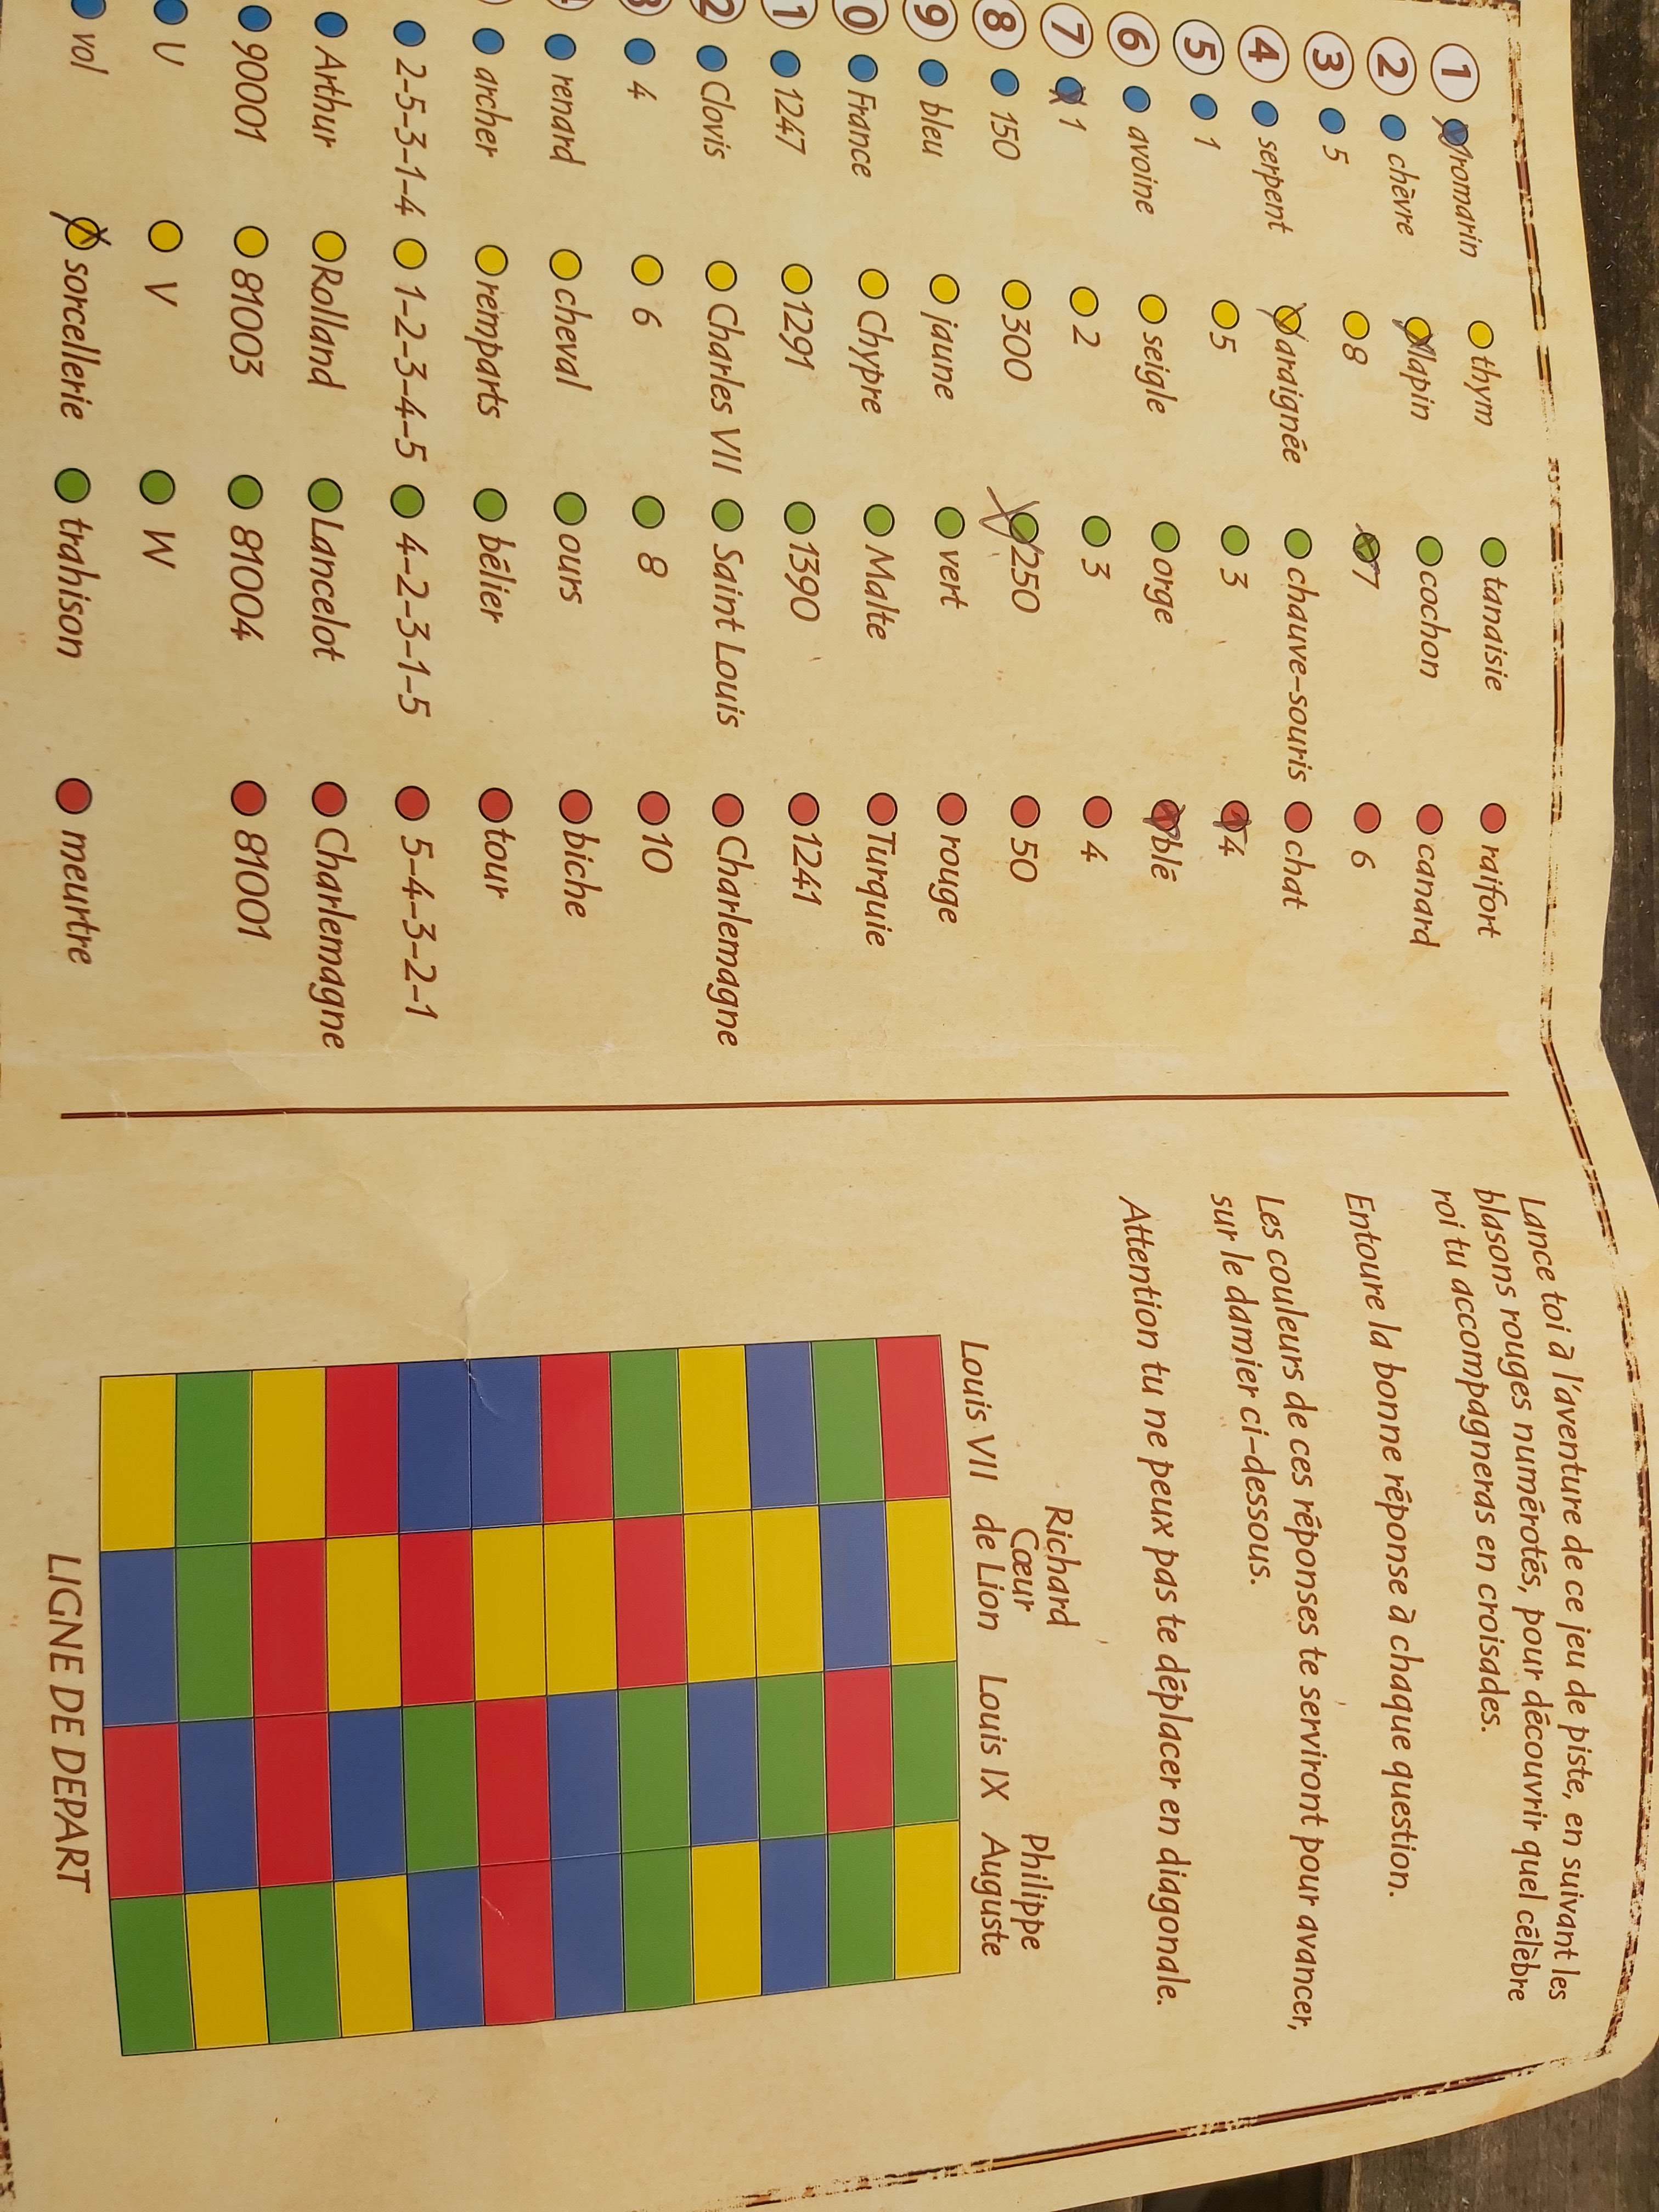 1 romarin thym tanaisie raifort
2 chèvre lapin cochon canard
3 5 8 7 6
4 serpent araignée chauve-souris chat
5 1 5 3 4
6 avoine seigle orge blé
7 1 2 3 4
8 150 300 250 50
9 bleu jaune vert rouge
0 France Chypre Malte Turquie
1 1247 1291 1390 1241
2 Clovis Charles VII Saint Louis Charlemagne
3 4 6 8 10
renard cheval ours biche
archer remparts bélier tour
2-5-3-1-4 1-2-3-4-5 4-2-3-1-5 5-4-3-2-1
Arthur Rolland Lancelot Charlemagne
90001 81003 81004 81001
U V W
vol sorcellerie trahison meurtre
Lance toi à l'aventure de ce jeu de piste, en suivant les
blasons rouges numérotés, pour découvrir quel célèbre
roi tu accompagneras en croisades.
Entoure la bonne réponse à chaque question.
Les couleurs de ces réponses te serviront pour avancer,
sur le damier ci-dessous.
Attention tu ne peux pas te déplacer en diagonale.
Louis VII
Richard
Cœur
de Lion
Louis IX
Philippe
Auguste
LIGNE DE DEPART